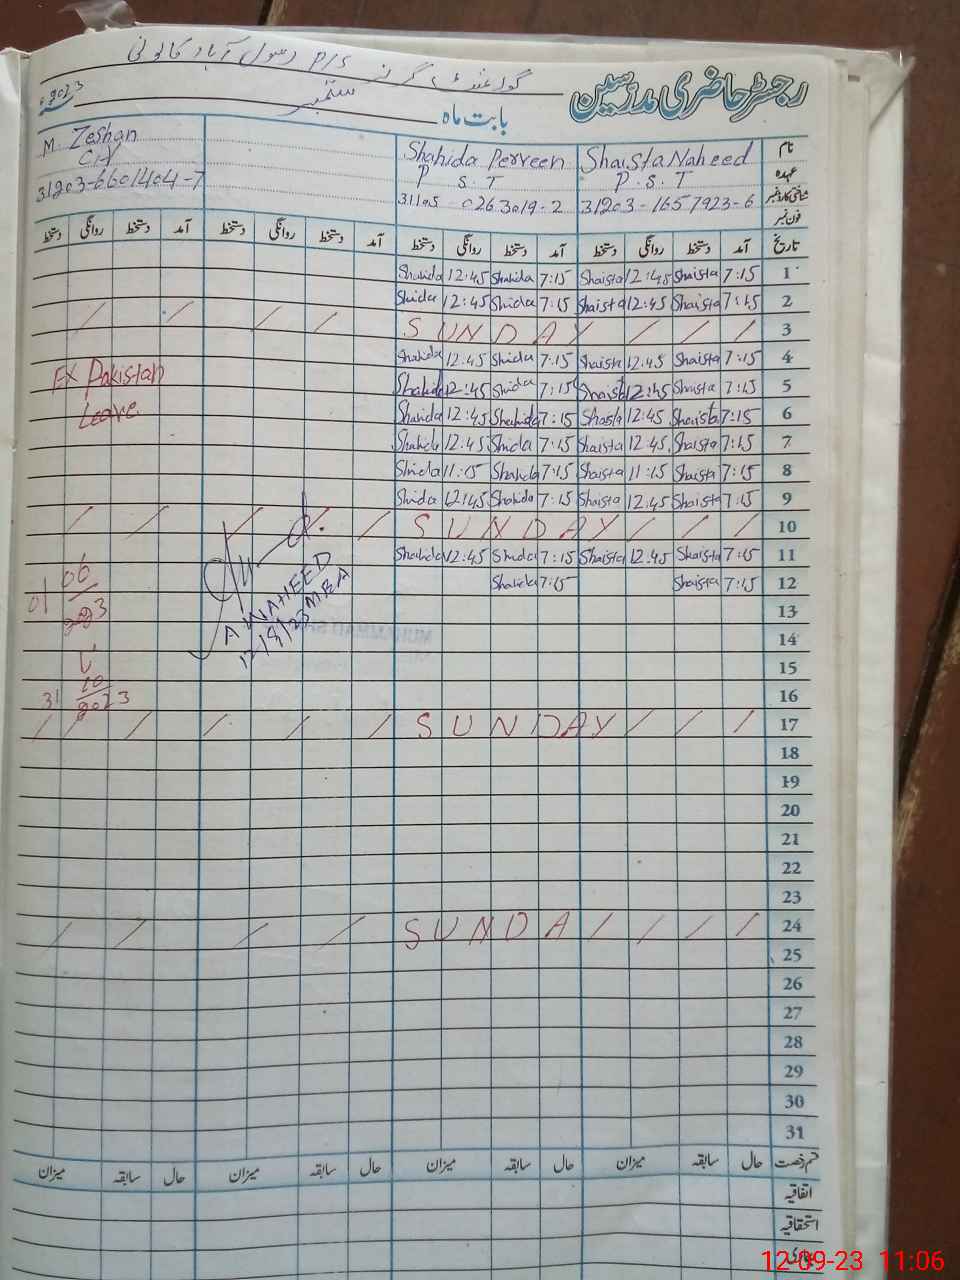 گورنمنٹ گرلز P/S رسول آباد کالونی
رجسٹر حاضری مدرسین
بابت ماہ ستمبر 2023ء
نام Shaista Naheed Shahida Perveen M Zeshan
عہدہ P.S.T P S.T C/V
شناختی کارڈ نمبر 31203-1657923-6 31105-0263019-2 31203-6601404-7
فون نمبر
تاریخ آمد دستخط روانگی دستخط آمد دستخط روانگی دستخط آمد دستخط روانگی دستخط آمد دستخط روانگی دستخط
1 7:15 Shaista 12:45 Shaista 7:15 Shahida 12:45 Shahida
2 7:15 Shaista 12:45 Shaista 7:15 Shida 12:45 Shida
3 SUNDAY
4 7:15 Shaista 12:45 Shaista 7:15 Shida 12:45 Shahida
5 7:15 Shaista 12:45 Shaista 7:15 Shida 12:45 Shahida
6 7:15 Shaista 12:45 Shaista 7:15 Shahida 12:45 Shahida
7 7:15 Shaista 12:45 Shaista 7:15 Shida 12:45 Shahida
8 7:15 Shaista 11:15 Shaista 7:15 Shahida 11:15 Shida
9 7:15 Shaista 12:45 Shaista 7:15 Shahida 12:45 Shida
10 SUNDAY
11 7:15 Shaista 12:45 Shaista 7:15 Shida 12:45 Shahida
12 7:15 Shaista 7:15 Shahida
13
14
15
16
17 SUNDAY
18
19
20
21
22
23
24 SUNDA
25
26
27
28
29
30
31
EX Pakistan
Leave
01 06
2023
31 10
2023
A WAHEED
12/9/23 MEA
قسم رخصت حال سابقہ میزان حال سابقہ میزان حال سابقہ میزان حال سابقہ میزان
اتفاقیہ
استحقاقیہ
12-09-23 11:06